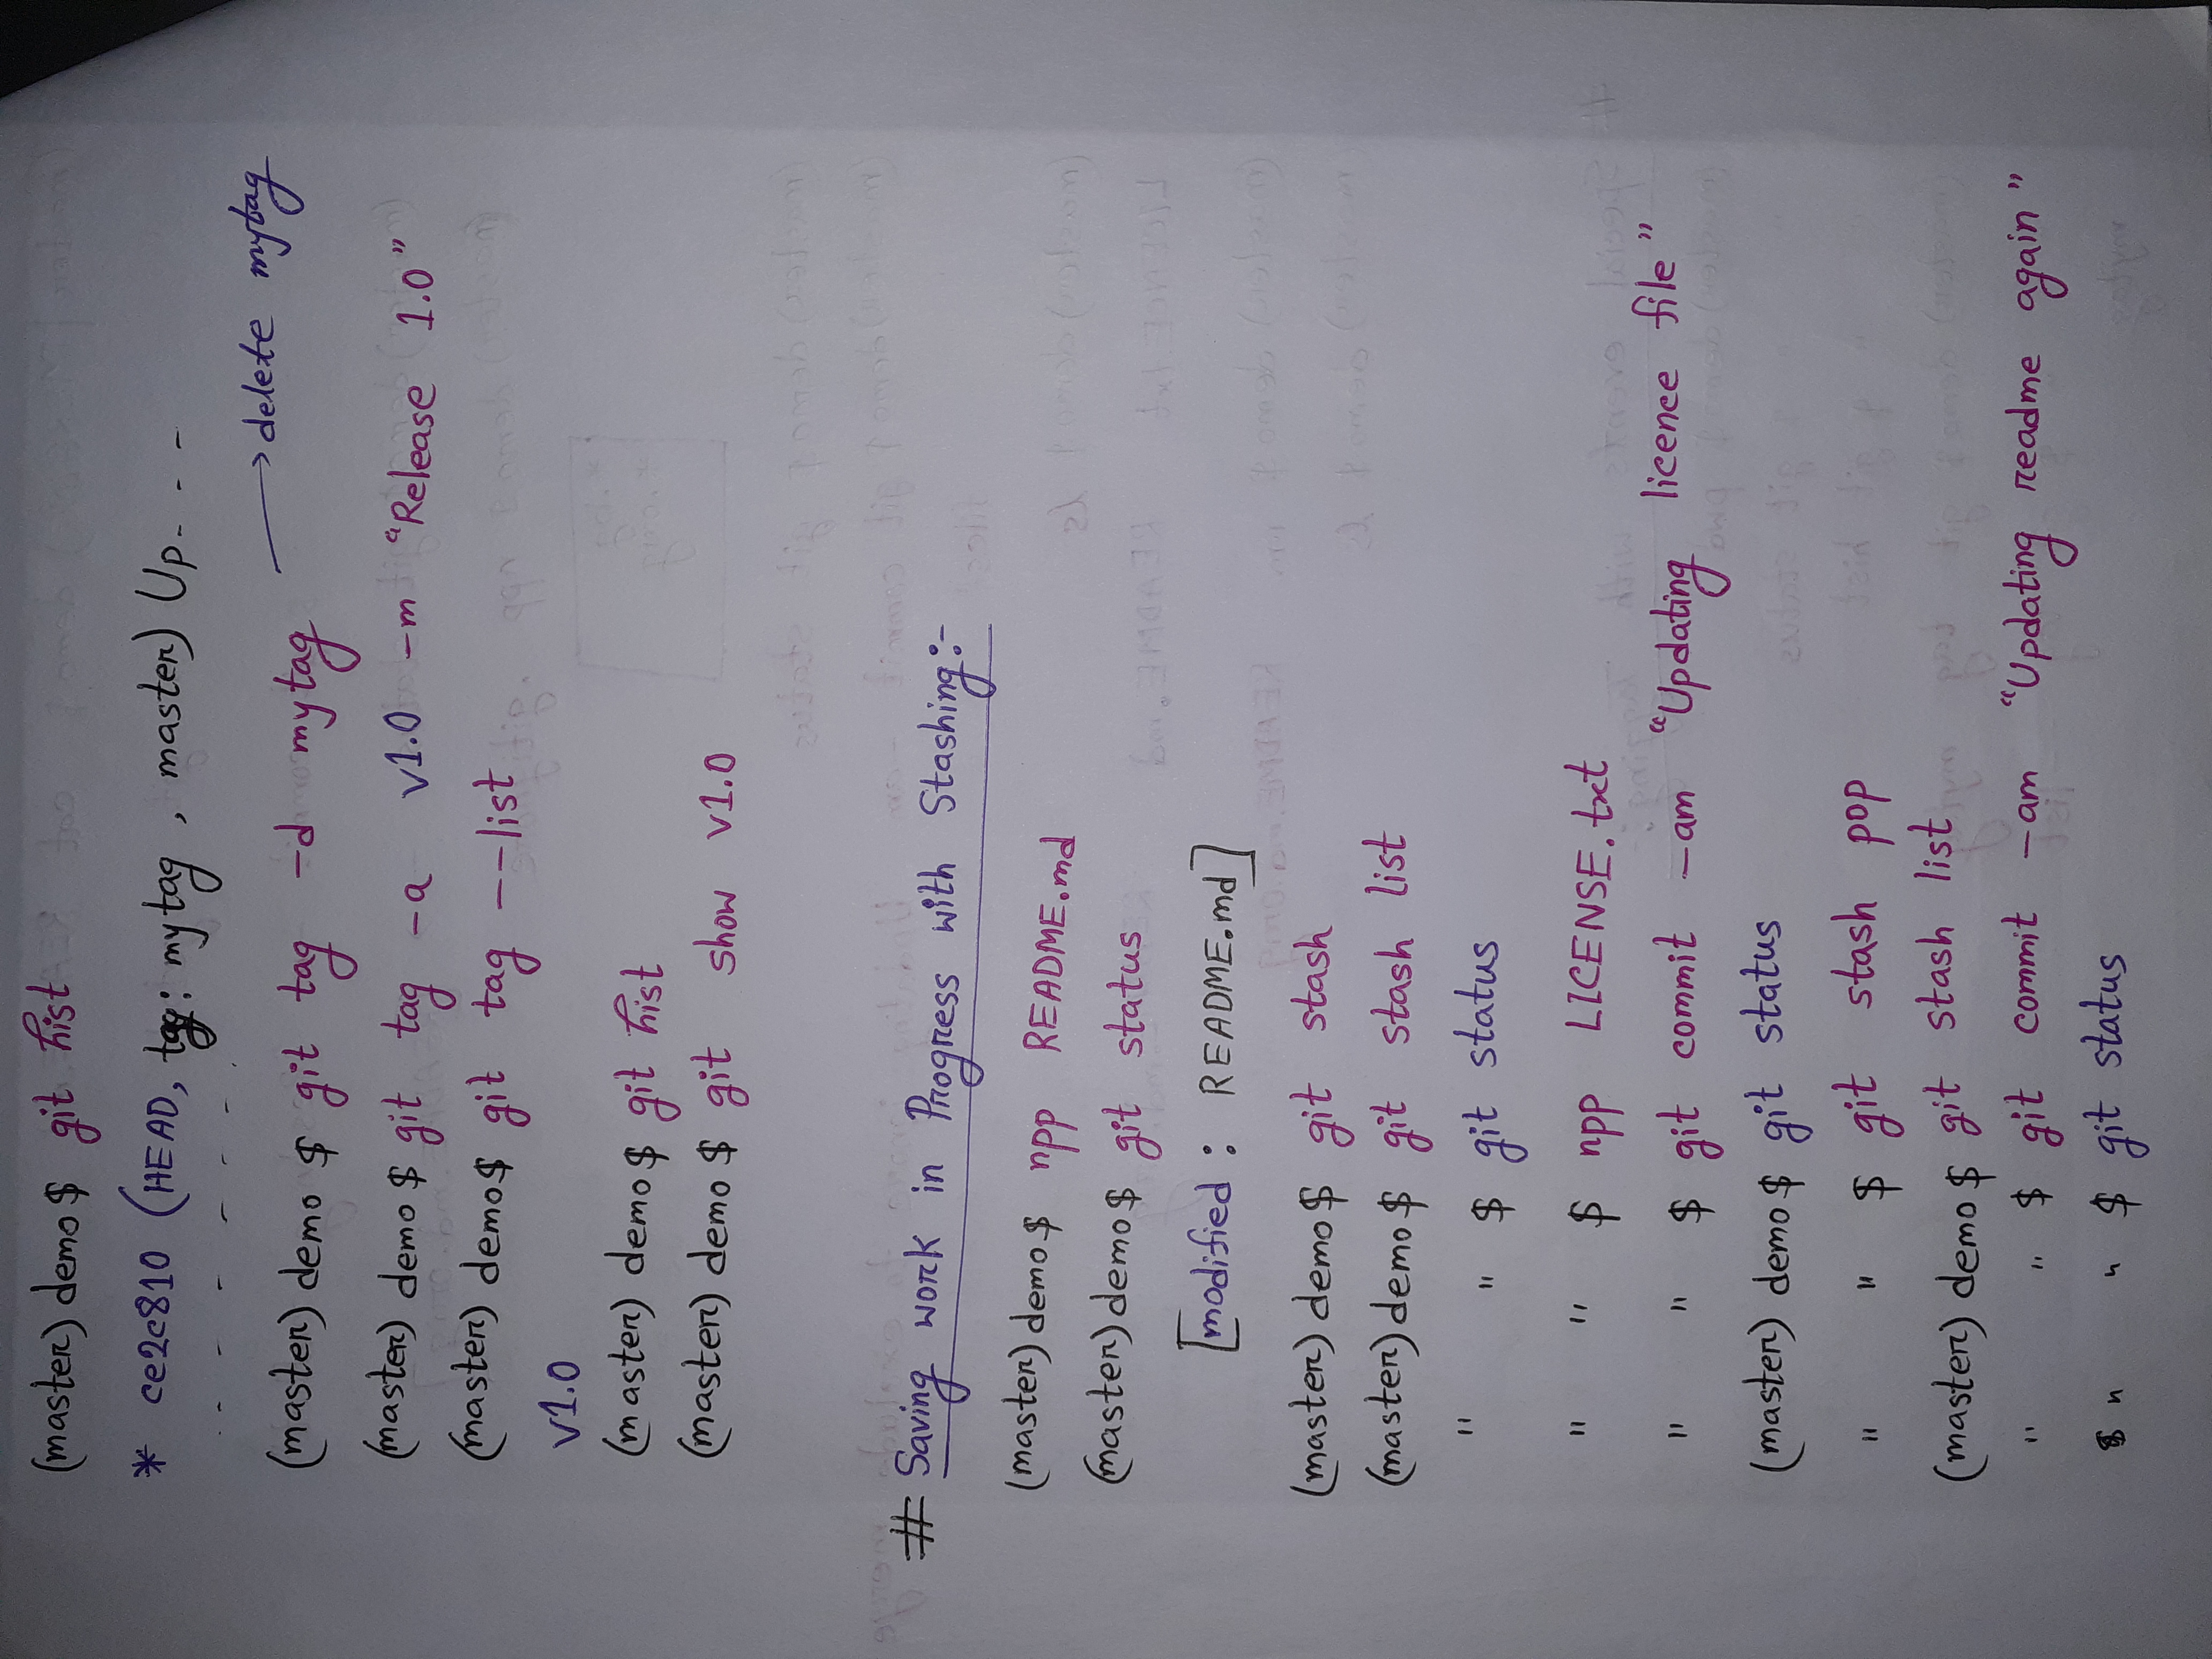 (master) demo $ git hist
* ce2c810 (HEAD, tag: mytag , master) Up- - -
- - - - - - -
(master) demo $ git tag -d mytag → delete mytag
(master) demo $ git tag -a v1.0 -m "Release 1.0"
(master) demo $ git tag --list
v1.0
(master) demo $ git hist
(master) demo $ git show v1.0
# Saving work in Progress with Stashing:-
(master) demo $ npp README.md
(master) demo $ git status
[modified : README.md]
(master) demo $ git stash
(master) demo $ git stash list
" " $ git status
" " $ npp LICENSE.txt
" " $ git commit -am "Updating licence file"
(master) demo $ git status
" " $ git stash pop
(master) demo $ git stash list
" " $ git commit -am "Updating readme again"
" " $ git status